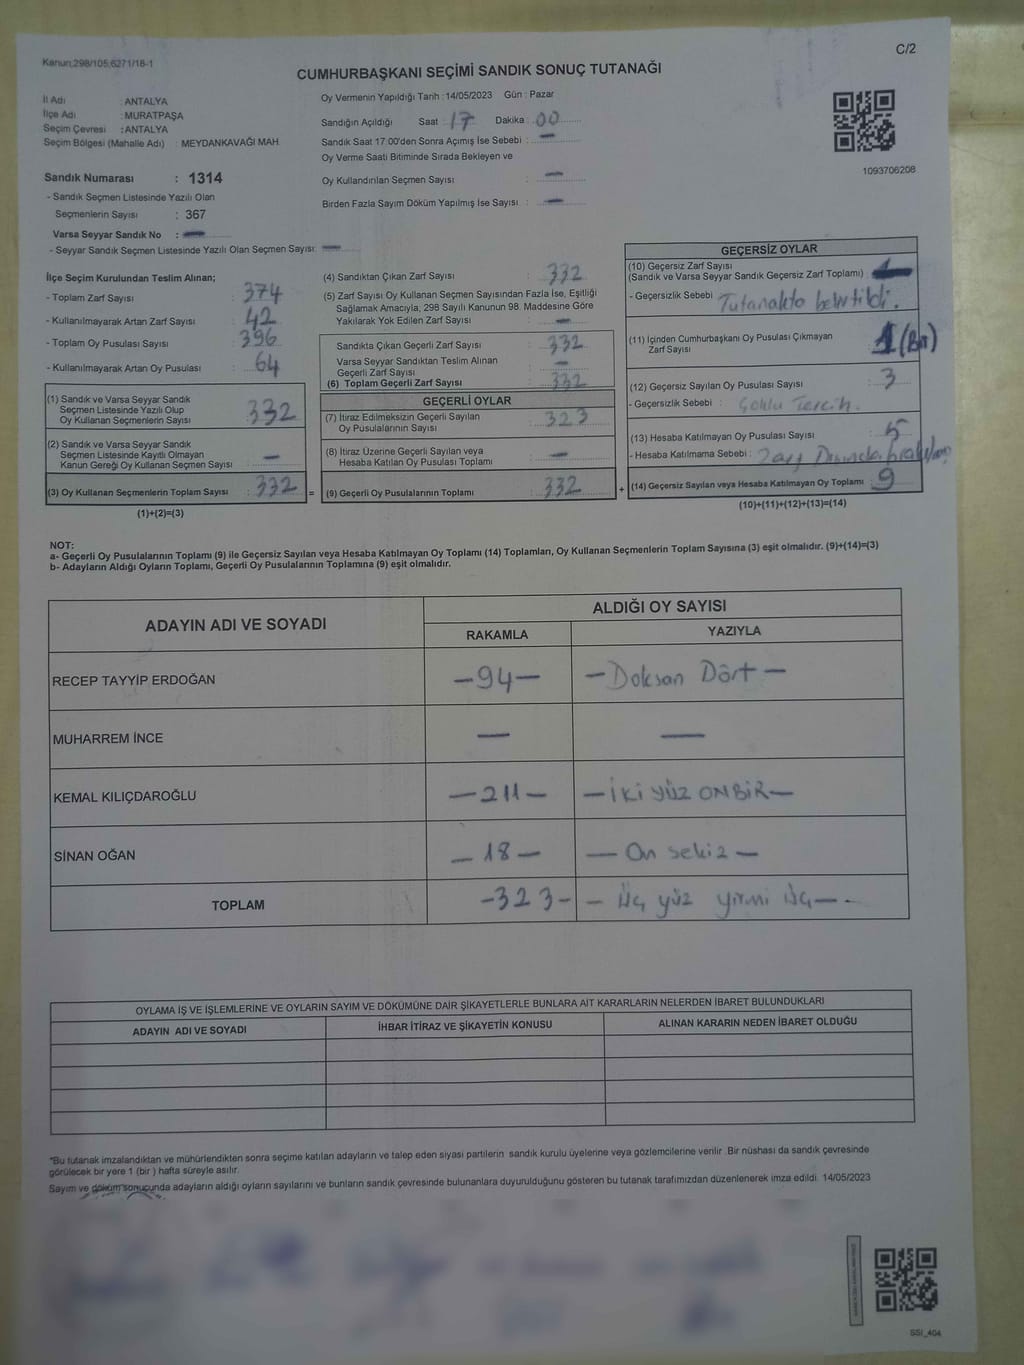 Kanun;298/105;6271/18-1
C/2
CUMHURBAŞKANI SEÇİMİ SANDIK SONUÇ TUTANAĞI
İl Adı : ANTALYA
İlçe Adı : MURATPAŞA
Seçim Çevresi : ANTALYA
Seçim Bölgesi (Mahalle Adı) : MEYDANKAVAĞI MAH.
Oy Vermenin Yapıldığı Tarih : 14/05/2023 Gün : Pazar
Sandığın Açıldığı Saat : 17 Dakika : 00
Sandık Saat 17:00'den Sonra Açımış İse Sebebi : —
Oy Verme Saati Bitiminde Sırada Bekleyen ve
Oy Kullandırılan Seçmen Sayısı : —
Birden Fazla Sayım Döküm Yapılmış İse Sayısı : —
1093706208
Sandık Numarası : 1314
- Sandık Seçmen Listesinde Yazılı Olan
Seçmenlerin Sayısı : 367
Varsa Seyyar Sandık No : —
- Seyyar Sandık Seçmen Listesinde Yazılı Olan Seçmen Sayısı: —
İlçe Seçim Kurulundan Teslim Alınan;
- Toplam Zarf Sayısı : 374
- Kullanılmayarak Artan Zarf Sayısı : 42
- Toplam Oy Pusulası Sayısı : 396
- Kullanılmayarak Artan Oy Pusulası : 64
(1) Sandık ve Varsa Seyyar Sandık
Seçmen Listesinde Yazılı Olup
Oy Kullanan Seçmenlerin Sayısı : 332
(2) Sandık ve Varsa Seyyar Sandık
Seçmen Listesinde Kayıtlı Olmayan
Kanun Gereği Oy Kullanan Seçmen Sayısı : —
(3) Oy Kullanan Seçmenlerin Toplam Sayısı : 332 =
(1)+(2)=(3)
(4) Sandıktan Çıkan Zarf Sayısı : 332
(5) Zarf Sayısı Oy Kullanan Seçmen Sayısından Fazla İse, Eşitliği
Sağlamak Amacıyla, 298 Sayılı Kanunun 98. Maddesine Göre
Yakılarak Yok Edilen Zarf Sayısı : —
Sandıkta Çıkan Geçerli Zarf Sayısı : 332
Varsa Seyyar Sandıktan Teslim Alınan
Geçerli Zarf Sayısı : —
(6) Toplam Geçerli Zarf Sayısı : 332
GEÇERLİ OYLAR
(7) İtiraz Edilmeksizin Geçerli Sayılan
Oy Pusulalarının Sayısı : 323
(8) İtiraz Üzerine Geçerli Sayılan veya
Hesaba Katılan Oy Pusulası Toplamı : —
(9) Geçerli Oy Pusulalarının Toplamı : 332 +
GEÇERSİZ OYLAR
(10) Geçersiz Zarf Sayısı
(Sandık ve Varsa Seyyar Sandık Geçersiz Zarf Toplamı) :
- Geçersizlik Sebebi : Tutanakta belirtildi.
(11) İçinden Cumhurbaşkanı Oy Pusulası Çıkmayan
Zarf Sayısı : 1 (Bir)
(12) Geçersiz Sayılan Oy Pusulası Sayısı : 3
- Geçersizlik Sebebi : Çoklu Tercih.
(13) Hesaba Katılmayan Oy Pusulası Sayısı : 5
- Hesaba Katılmama Sebebi : Zarf Dışında bırakılmış
(14) Geçersiz Sayılan veya Hesaba Katılmayan Oy Toplamı : 9
(10)+(11)+(12)+(13)=(14)
NOT:
a- Geçerli Oy Pusulalarının Toplamı (9) ile Geçersiz Sayılan veya Hesaba Katılmayan Oy Toplamı (14) Toplamları, Oy Kullanan Seçmenlerin Toplam Sayısına (3) eşit olmalıdır. (9)+(14)=(3)
b- Adayların Aldığı Oyların Toplamı, Geçerli Oy Pusulalarının Toplamına (9) eşit olmalıdır.
ADAYIN ADI VE SOYADI
ALDIĞI OY SAYISI
RAKAMLA YAZIYLA
RECEP TAYYİP ERDOĞAN —94— —Doksan Dört—
MUHARREM İNCE — —
KEMAL KILIÇDAROĞLU —211— —İKİ YÜZ ONBİR—
SİNAN OĞAN —18— —On sekiz—
TOPLAM -323- — Üç yüz yirmi üç—-
OYLAMA İŞ VE İŞLEMLERİNE VE OYLARIN SAYIM VE DÖKÜMÜNE DAİR ŞİKAYETLERLE BUNLARA AİT KARARLARIN NELERDEN İBARET BULUNDUKLARI
ADAYIN ADI VE SOYADI İHBAR İTİRAZ VE ŞİKAYETİN KONUSU ALINAN KARARIN NEDEN İBARET OLDUĞU
*Bu tutanak imzalandıktan ve mühürlendikten sonra seçime katılan adayların ve talep eden siyasi partilerin sandık kurulu üyelerine veya gözlemcilerine verilir .Bir nüshası da sandık çevresinde
görülecek bir yere 1 (bir ) hafta süreyle asılır.
Sayım ve döküm sonucunda adayların aldığı oyların sayılarını ve bunların sandık çevresinde bulunanlara duyurulduğunu gösteren bu tutanak tarafımızdan düzenlenerek imza edildi. 14/05/2023
SSI_404